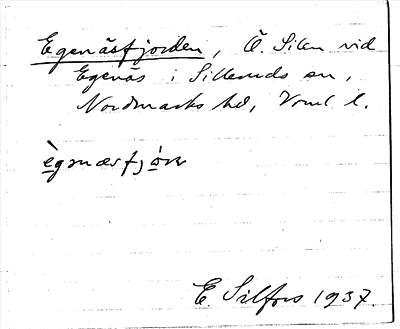 Egenäsfjorden, Ö. Silen vid
Egenäs i Silleruds sn,
Nordmarks hd, Vrml l.
ègnæsfjòɷ
E. Silfors 1937.